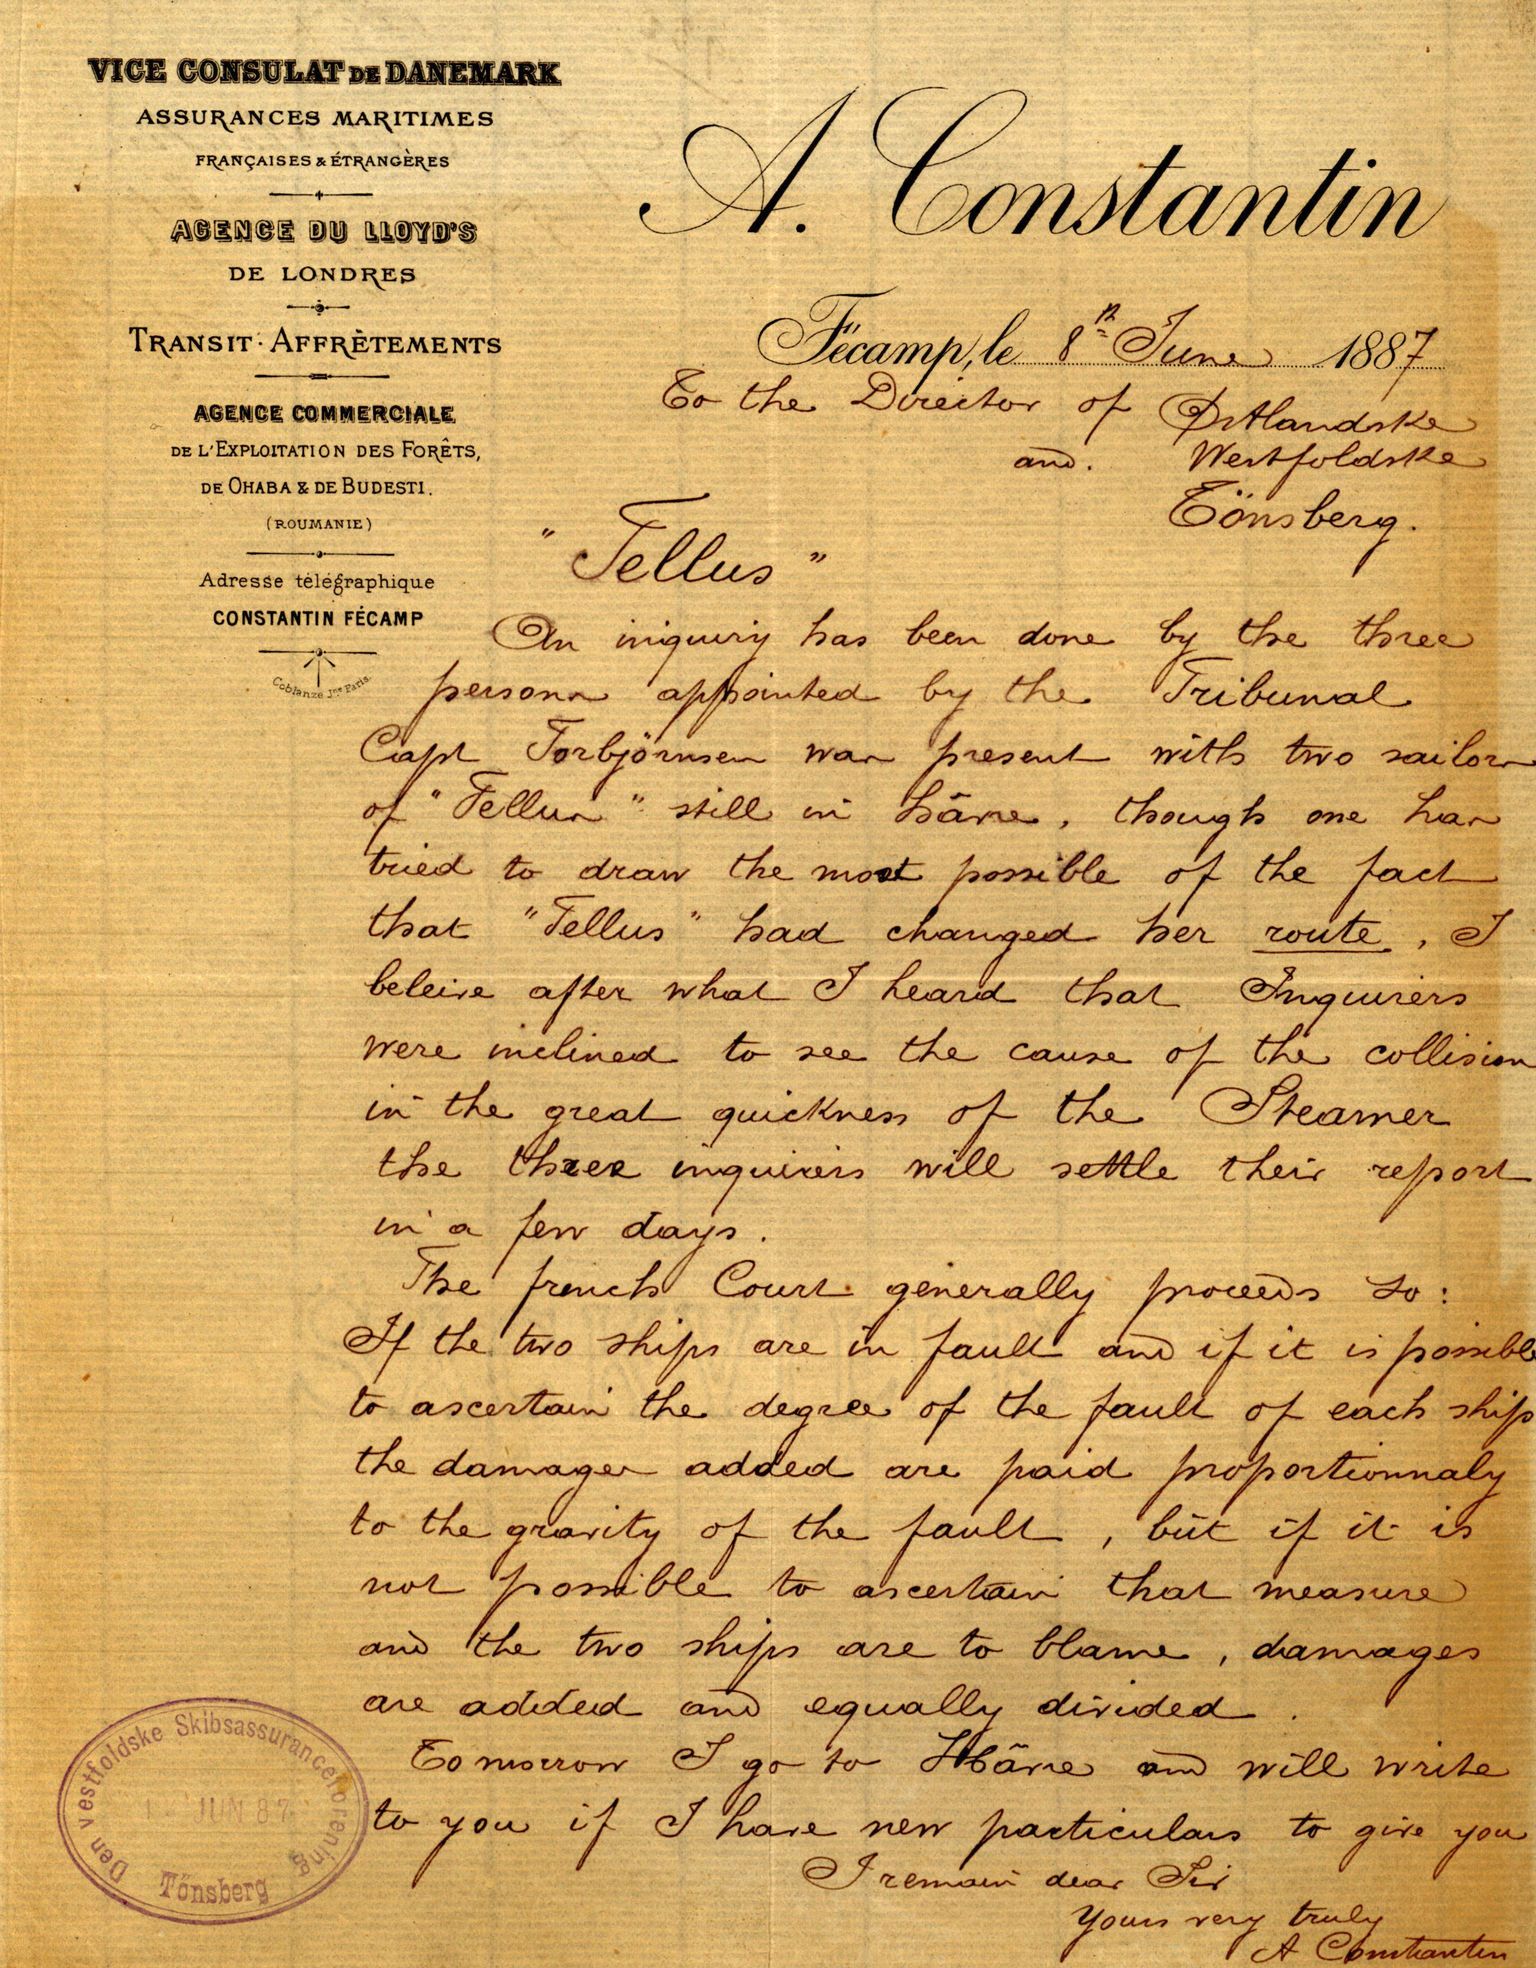 VICE CONSULAT DE DANEMARK
ASSURANCES MARITIMES
FRANÇAISES & ÉTRANGÈRES
AGENCE DU LLOYD'S
DE LONDRES
TRANSIT · AFFRÈTEMENTS
AGENCE COMMERCIALE
DE L'EXPLOITATION DES FORÊTS,
DE OHABA & DE BUDESTI.
(ROUMANIE)
Adresse télégraphique
CONSTANTIN FÉCAMP
Coblanze Jne Paris.
A. Constantin
Fécamp, le 8th June 1887
To the Director of Ostlandske
and. Westfoldske
Tönsberg.
"Tellus"
An inquiry has been done by the three
persons appointed by the Tribunal
Capt Torbjörnsen was present with two sailors
of "Tellus" still in hâvre, though one has
tried to draw the most possible of the fact
that "Tellus" had changed her route, I
beleive after what I heard that Inquirers
were inclined to see the cause of the collision
in the great quickness of the Steamer
the three inquirers will settle their report
in a few days.
The french Court generally proceeds so:
If the two ships are in fault and if it is possible
to ascertain the degree of the fault of each ship
the damages added are paid proportionnaly
to the gravity of the fault, but if it is
not possible to ascertain that measure
and the two ships are to blame, damages
are added and equally divided.
Tomorrow I go to Hâvre and will write
to you if I have new particulars to give you
I remain dear Sir
Yours very truly
A Constantin
Den vestfoldske Skibsassuranceforening
JUN 87
Tönsberg